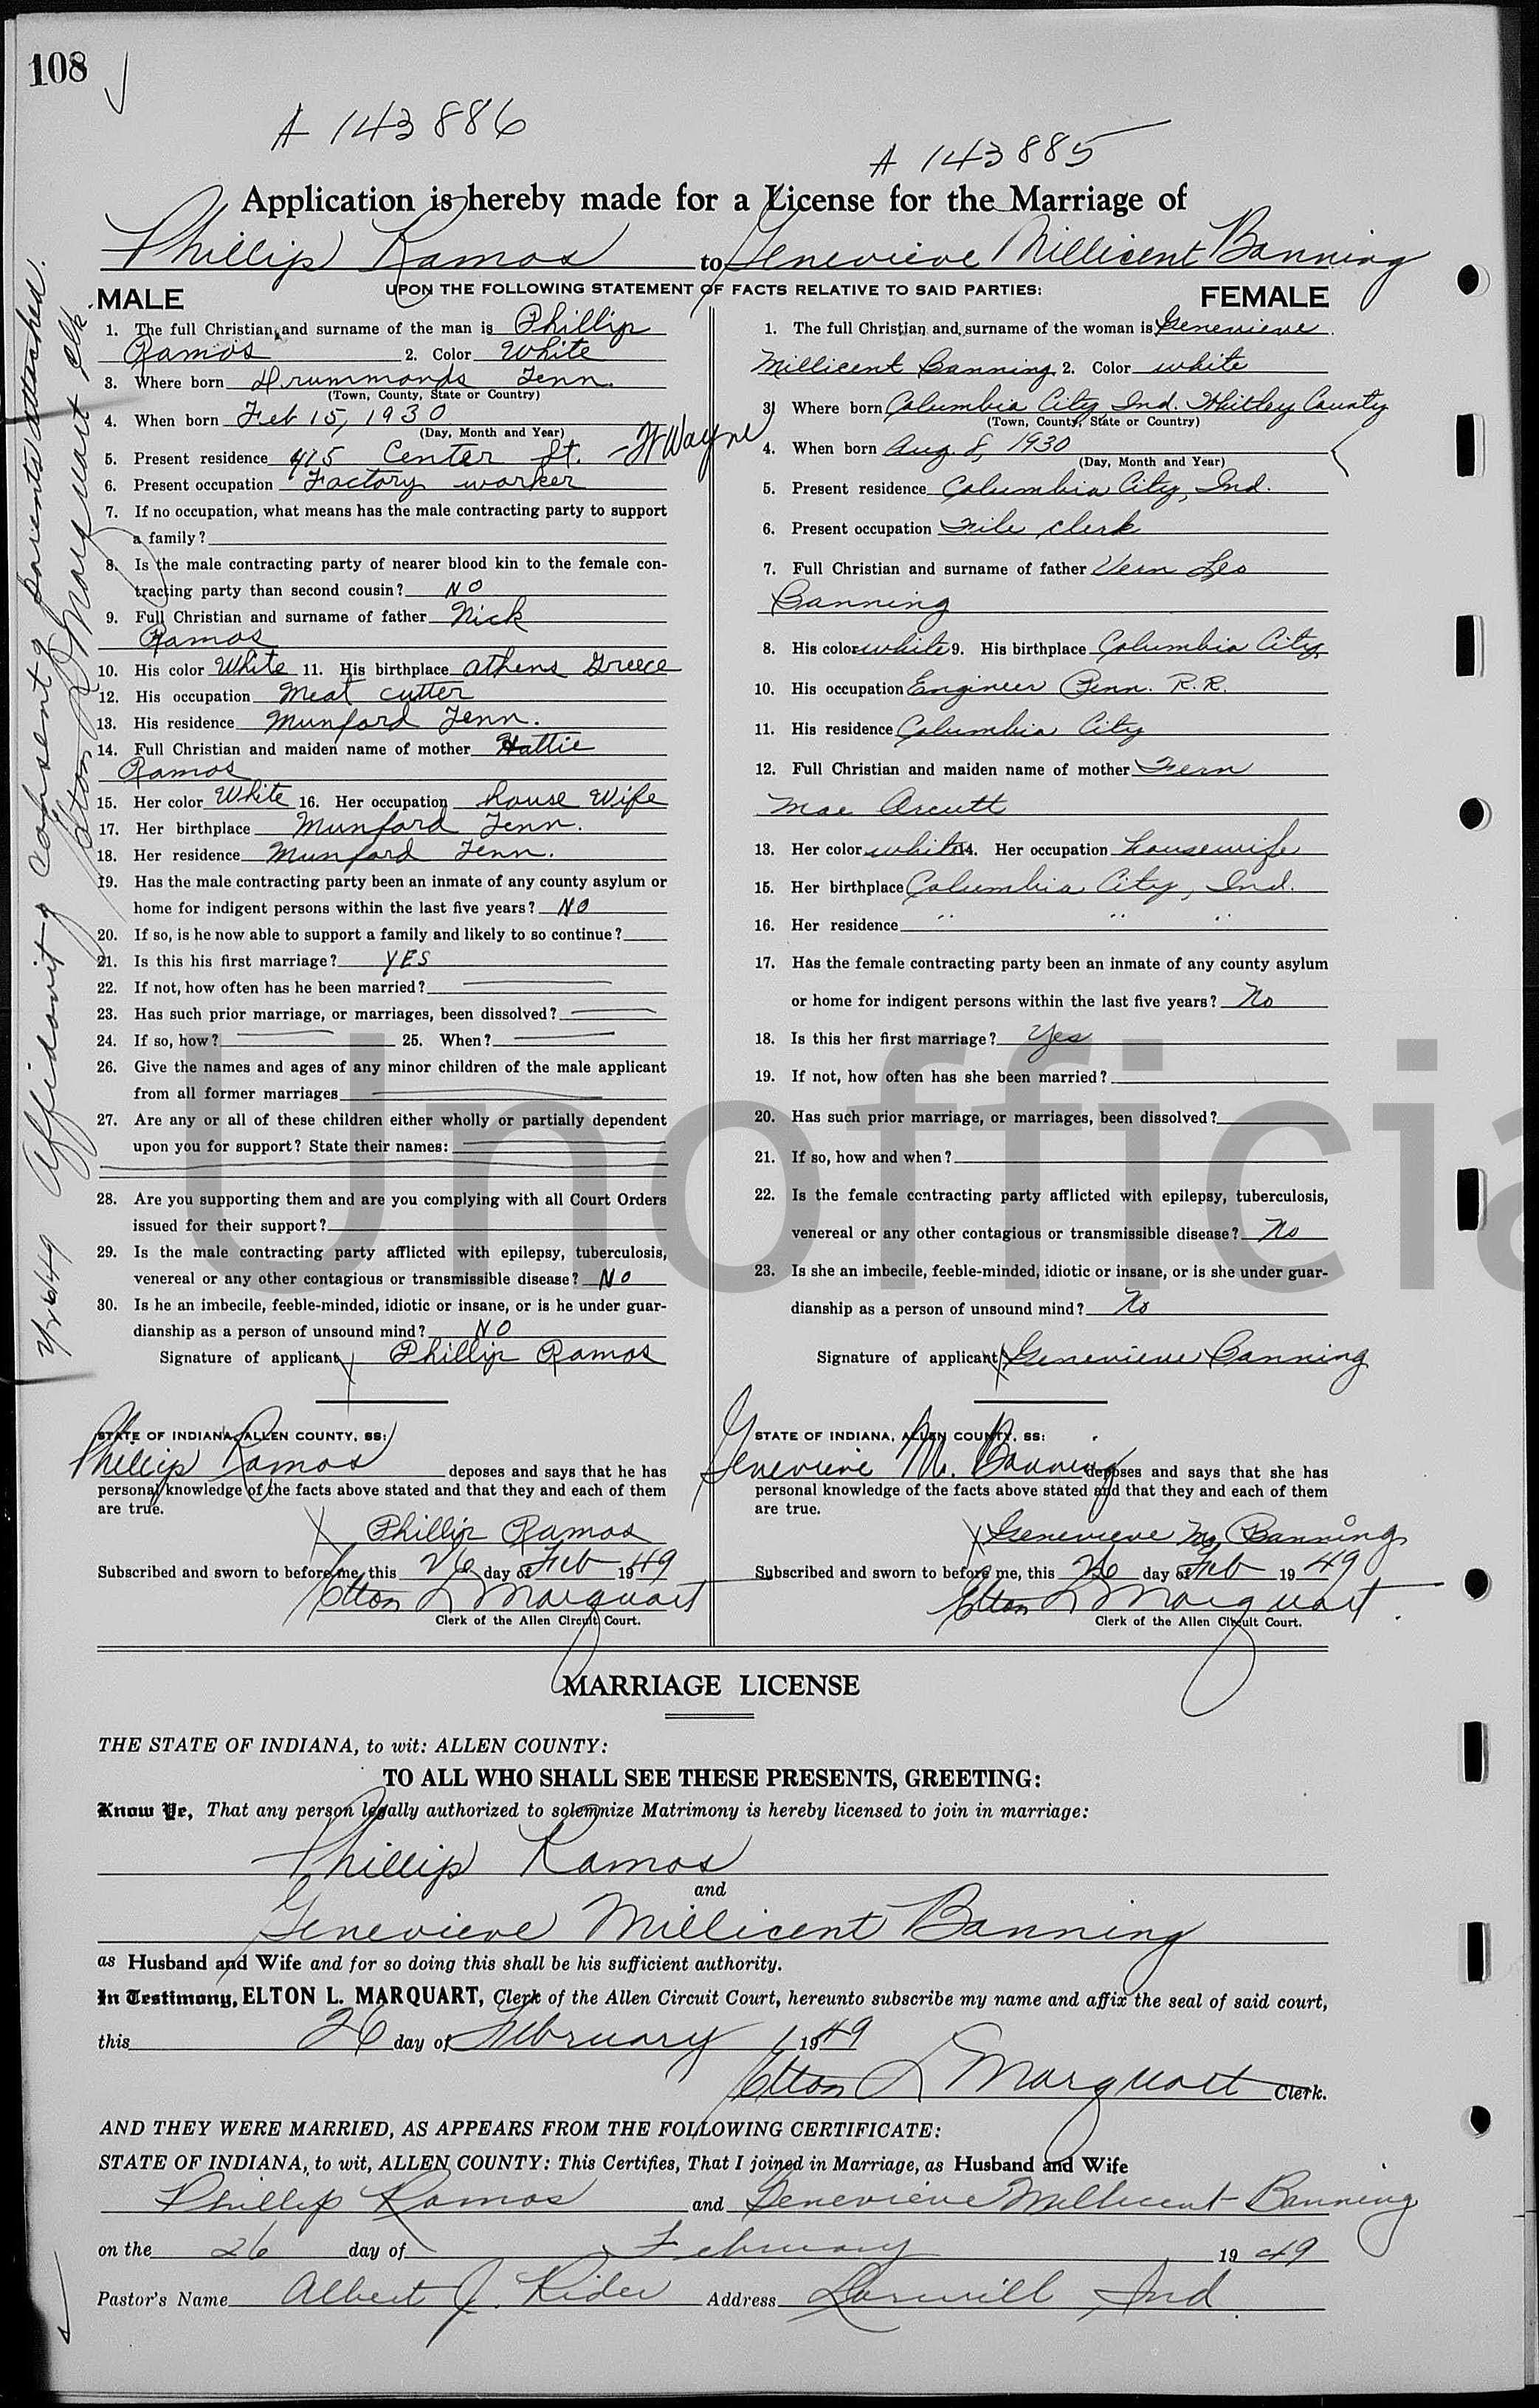 108
A 143886
A 143885
Application is hereby made for a License for the Marriage of
Phillip Ramos to Genevieve Millicent Banning
UPON THE FOLLOWING STATEMENT OF FACTS RELATIVE TO SAID PARTIES:
MALE
1. The full Christian and surname of the man is Phillip
Ramos 2. Color White
3. Where born Drummonds Tenn.
(Town, County, State or Country)
4. When born Feb 15, 1930
(Day, Month and Year)
5. Present residence 415 Center St. - Ft Wayne
6. Present occupation Factory worker
7. If no occupation, what means has the male contracting party to support
a family?
8. Is the male contracting party of nearer blood kin to the female con-
tracting party than second cousin? NO
9. Full Christian and surname of father Nick
Ramos
10. His color White 11. His birthplace athens Greece
12. His occupation Meat cutter
13. His residence Munford Tenn.
14. Full Christian and maiden name of mother Hattie
Ramos
15. Her color White 16. Her occupation house Wife
17. Her birthplace Munford Tenn.
18. Her residence Munford Tenn.
19. Has the male contracting party been an inmate of any county asylum or
home for indigent persons within the last five years? NO
20. If so, is he now able to support a family and likely to so continue?
21. Is this his first marriage? YES
22. If not, how often has he been married?
23. Has such prior marriage, or marriages, been dissolved?
24. If so, how? 25. When?
26. Give the names and ages of any minor children of the male applicant
from all former marriages
27. Are any or all of these children either wholly or partially dependent
upon you for support? State their names:
28. Are you supporting them and are you complying with all Court Orders
issued for their support?
29. Is the male contracting party afflicted with epilepsy, tuberculosis,
venereal or any other contagious or transmissible disease? NO
30. Is he an imbecile, feeble-minded, idiotic or insane, or is he under guar-
dianship as a person of unsound mind? NO
Signature of applicant Phillip Ramos
STATE OF INDIANA, ALLEN COUNTY, SS:
Phillip Ramos deposes and says that he has
personal knowledge of the facts above stated and that they and each of them
are true.
Phillip Ramos
Subscribed and sworn to before me, this 26 day of Feb 1949
Elton L Marquart
Clerk of the Allen Circuit Court.
FEMALE
1. The full Christian and surname of the woman is Genevieve
Millicent Banning 2. Color white
3. Where born Columbia City, Ind. Whitley County
(Town, County, State or Country)
4. When born Aug. 8, 1930
(Day, Month and Year)
5. Present residence Columbia City, Ind.
6. Present occupation File clerk
7. Full Christian and surname of father Vern Leo
Banning
8. His color white 9. His birthplace Columbia City
10. His occupation Engineer Penn. R.R.
11. His residence Columbia City
12. Full Christian and maiden name of mother Fern
Mae Arcutt
13. Her color white 14. Her occupation housewife
15. Her birthplace Columbia City, Ind.
16. Her residence " " "
17. Has the female contracting party been an inmate of any county asylum
or home for indigent persons within the last five years? No
18. Is this her first marriage? Yes
19. If not, how often has she been married?
20. Has such prior marriage, or marriages, been dissolved?
21. If so, how and when?
22. Is the female contracting party afflicted with epilepsy, tuberculosis,
venereal or any other contagious or transmissible disease? No
23. Is she an imbecile, feeble-minded, idiotic or insane, or is she under guar-
dianship as a person of unsound mind? No
Signature of applicant Genevieve Banning
STATE OF INDIANA, ALLEN COUNTY, SS:
Genevieve M. Banning deposes and says that she has
personal knowledge of the facts above stated and that they and each of them
are true.
Genevieve M. Banning
Subscribed and sworn to before me, this 26 day of Feb 1949
Elton L Marquart
Clerk of the Allen Circuit Court.
2/26/49 Affidavit of consent of parents attached.
Elton L Marquart Clk.
Unofficia
MARRIAGE LICENSE
THE STATE OF INDIANA, to wit: ALLEN COUNTY:
TO ALL WHO SHALL SEE THESE PRESENTS, GREETING:
Know Ye, That any person legally authorized to solemnize Matrimony is hereby licensed to join in marriage:
Phillip Ramos
and
Genevieve Millicent Banning
as Husband and Wife and for so doing this shall be his sufficient authority.
In Testimony, ELTON L. MARQUART, Clerk of the Allen Circuit Court, hereunto subscribe my name and affix the seal of said court,
this 26 day of February 1949
Elton L Marquart Clerk.
AND THEY WERE MARRIED, AS APPEARS FROM THE FOLLOWING CERTIFICATE:
STATE OF INDIANA, to wit, ALLEN COUNTY: This Certifies, That I joined in Marriage, as Husband and Wife
Phillip Ramos and Genevieve Millicent Banning
on the 26 day of February 1949
Pastor's Name Albert J. Kider Address Larwill Ind